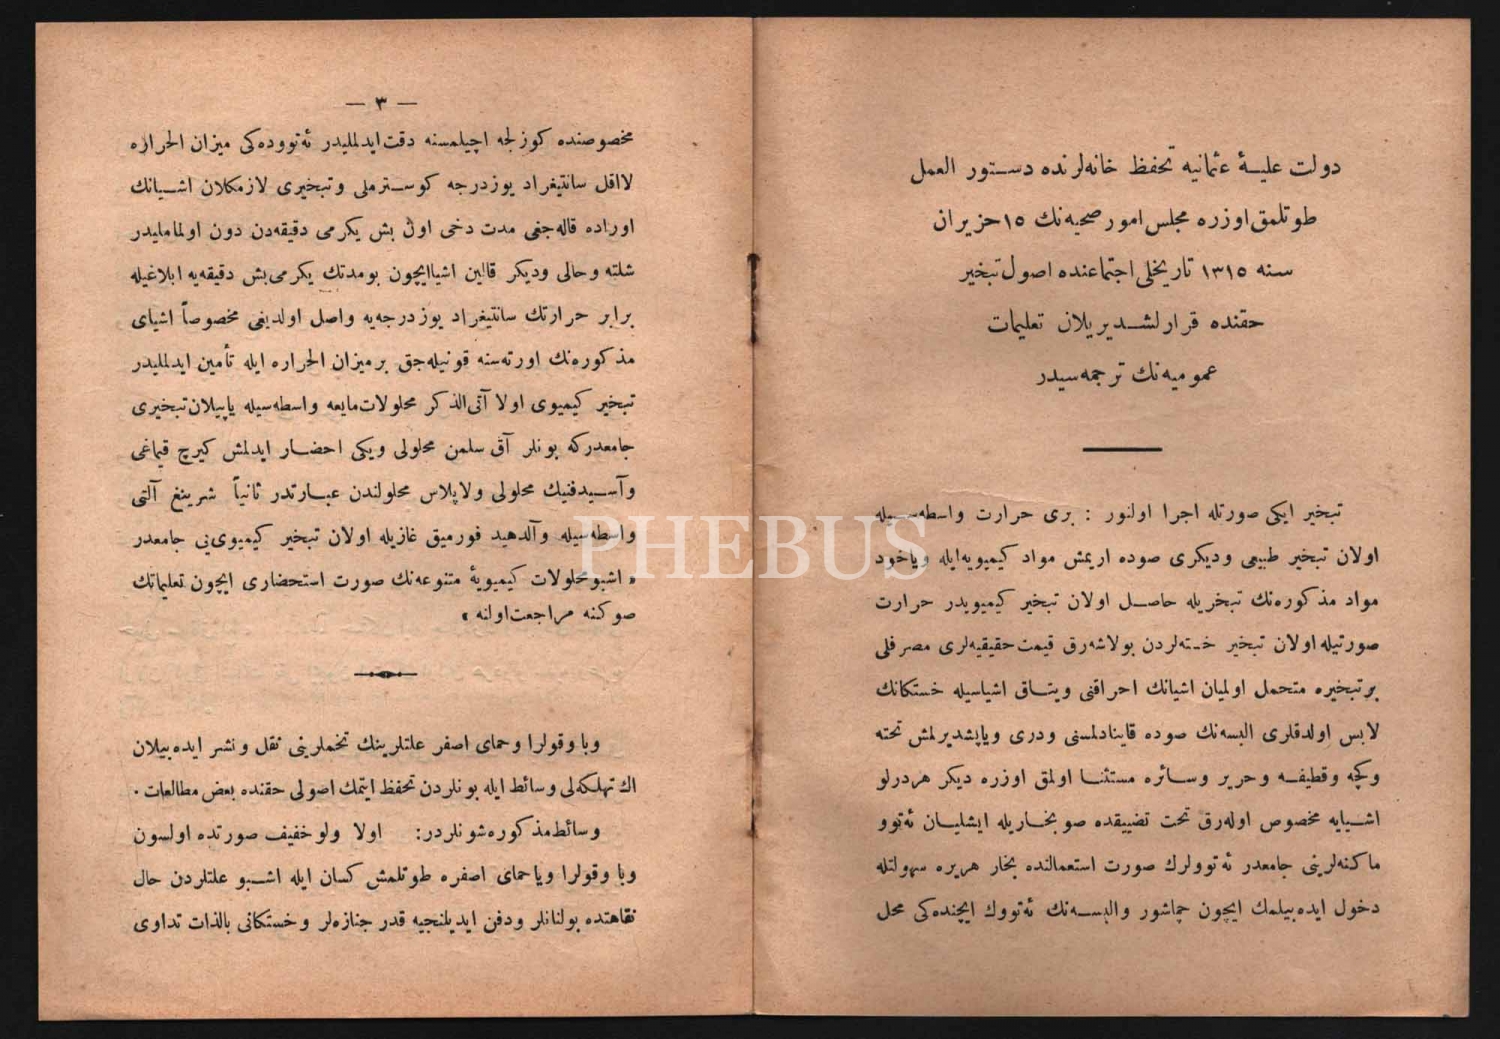 دولت علیـهٔ عثمانیه تحفظ خانه‌لرنده دسـتور العمل
طوتلمق اوزره مجلس امور صحیه‌نك ١٥ حزیران
سنه ١٣١٥ تاریخلی اجتماعنده اصول تبخیر
حقنده قرارلشـدیریلان تعلیمات
عمومیه‌نك ترجمه‌سیدر
تبخیر ایكی صورتله اجرا اولنور : بری حرارت واسطه‌سـیله
اولان تبخیر طبیعی ودیكری صوده اریمش مواد كیمیویه‌ایله ویاخود
مواد مذكوره‌نك تبخریله حاصـل اولان تبخیر كیمیویدر حرارت
صورتیله اولان تبخیر خـته‌لردن بولاشه‌رق قیمت حقیقیه‌لری مصرفلی
برتبخیره متحمل اولمیان اشیانك احراقنی ویتـاق اشیاسیله خستكانك
لابس اولدقلری البسه‌نك صوده قاینادلمسنی ودری ویاپشدیرلمش تخته
وكچه وقطیفـه وحریر وسـائره مستثنـا اولمق اوزره دیكر هردرلو
اشـیایه مخصوص اوله‌رق تحت تضییقده صوبخاریله ایشلیـان ئه‌توو
ماكنه‌لرینی جامعدر ئه‌توولرك صورت استعمالنده بخار هریره سهولتله
دخول ایده‌بیلمك ایچون چماشور والبسـه‌نك ئه‌تووك ایچنده‌كی محل
— ٣ —
مخصوصنده كوزلجه اچیلمسنه دقت ایدلملیدر ئه‌تووده‌كی میزان الحراره
لااقل سانتیغراد یوزدرجه كوسـترملی وتبخیری لازمكلان اشـیانك
اوراده قاله‌جغی مدت دخی اون بش یكرمی دقیقه‌دن دون اولماملیدر
شلته وحالی ودیكر قالین اشیاایچون بومدتك یكرمی‌بش دقیقه‌یه ابلاغیله
برابر حرارتك سانتیغراد یوزدرجه‌یه واصل اولدیغی مخصوصاً اشیای
مذكوره‌نك اورته‌سنه قونیله‌جق برمیزان الحراره ایله تأمین ایدلملیدر
تبخیر كیمیوی اولا آتی‌الذكر محلولات‌مایعه واسطه‌سیله یاپیلان تبخیری
جامعدركه بونلر آق سلمن محلولی ویكی احضـار ایدلمش كیرج قیماغی
وآسـیدفنیك محلولی ولاپلاس محلولندن عبـارتدر ثانیاً شرینغ آلتی
واسطه‌سـیله وآلدهید فورمیق غازیله اولان تبخیر كیمیوی‌یی جامعدر
« اشبومحلولات كیمیویهٔ متنوعه‌نك صورت استحضاری ایچون تعلیماتك
صوكنه مراجعت‌اولنه »
وبا وقولرا وحمای اصفر علتلرینك تخملرینی نقل ونشر ایده‌بیلان
اك تهلكه‌لی وسائط ایله بونلردن تحفظ ایتمك اصولی حقنده بعض مطالعات .
وسائط‌مذكوره‌شونلردر: اولا ولو خفیف صورتده اولسون
وبا وقولرا ویاحمای اصفره طوتلمش كسان ایله اشـبو علتلردن حال
نقاهتده بولنانلر ودفن ایدیلنجیه قدر جنازه‌لر وخستكانی بالذات تداوی
PHEBUS